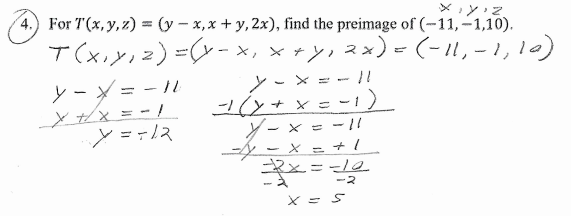 x, y, z
4. For T(x, y, z) = (y − x, x + y, 2x), find the preimage of (−11, −1, 10).
T(x, y, z) = (y - x, x + y, 2x) = (-11, -1, 10)
y - x = -11
x + x = -1
y = -12
y - x = -11
-1(y + x = -1)
y - x = -11
-y - x = +1
-2x = -10
-2 -2
x = 5